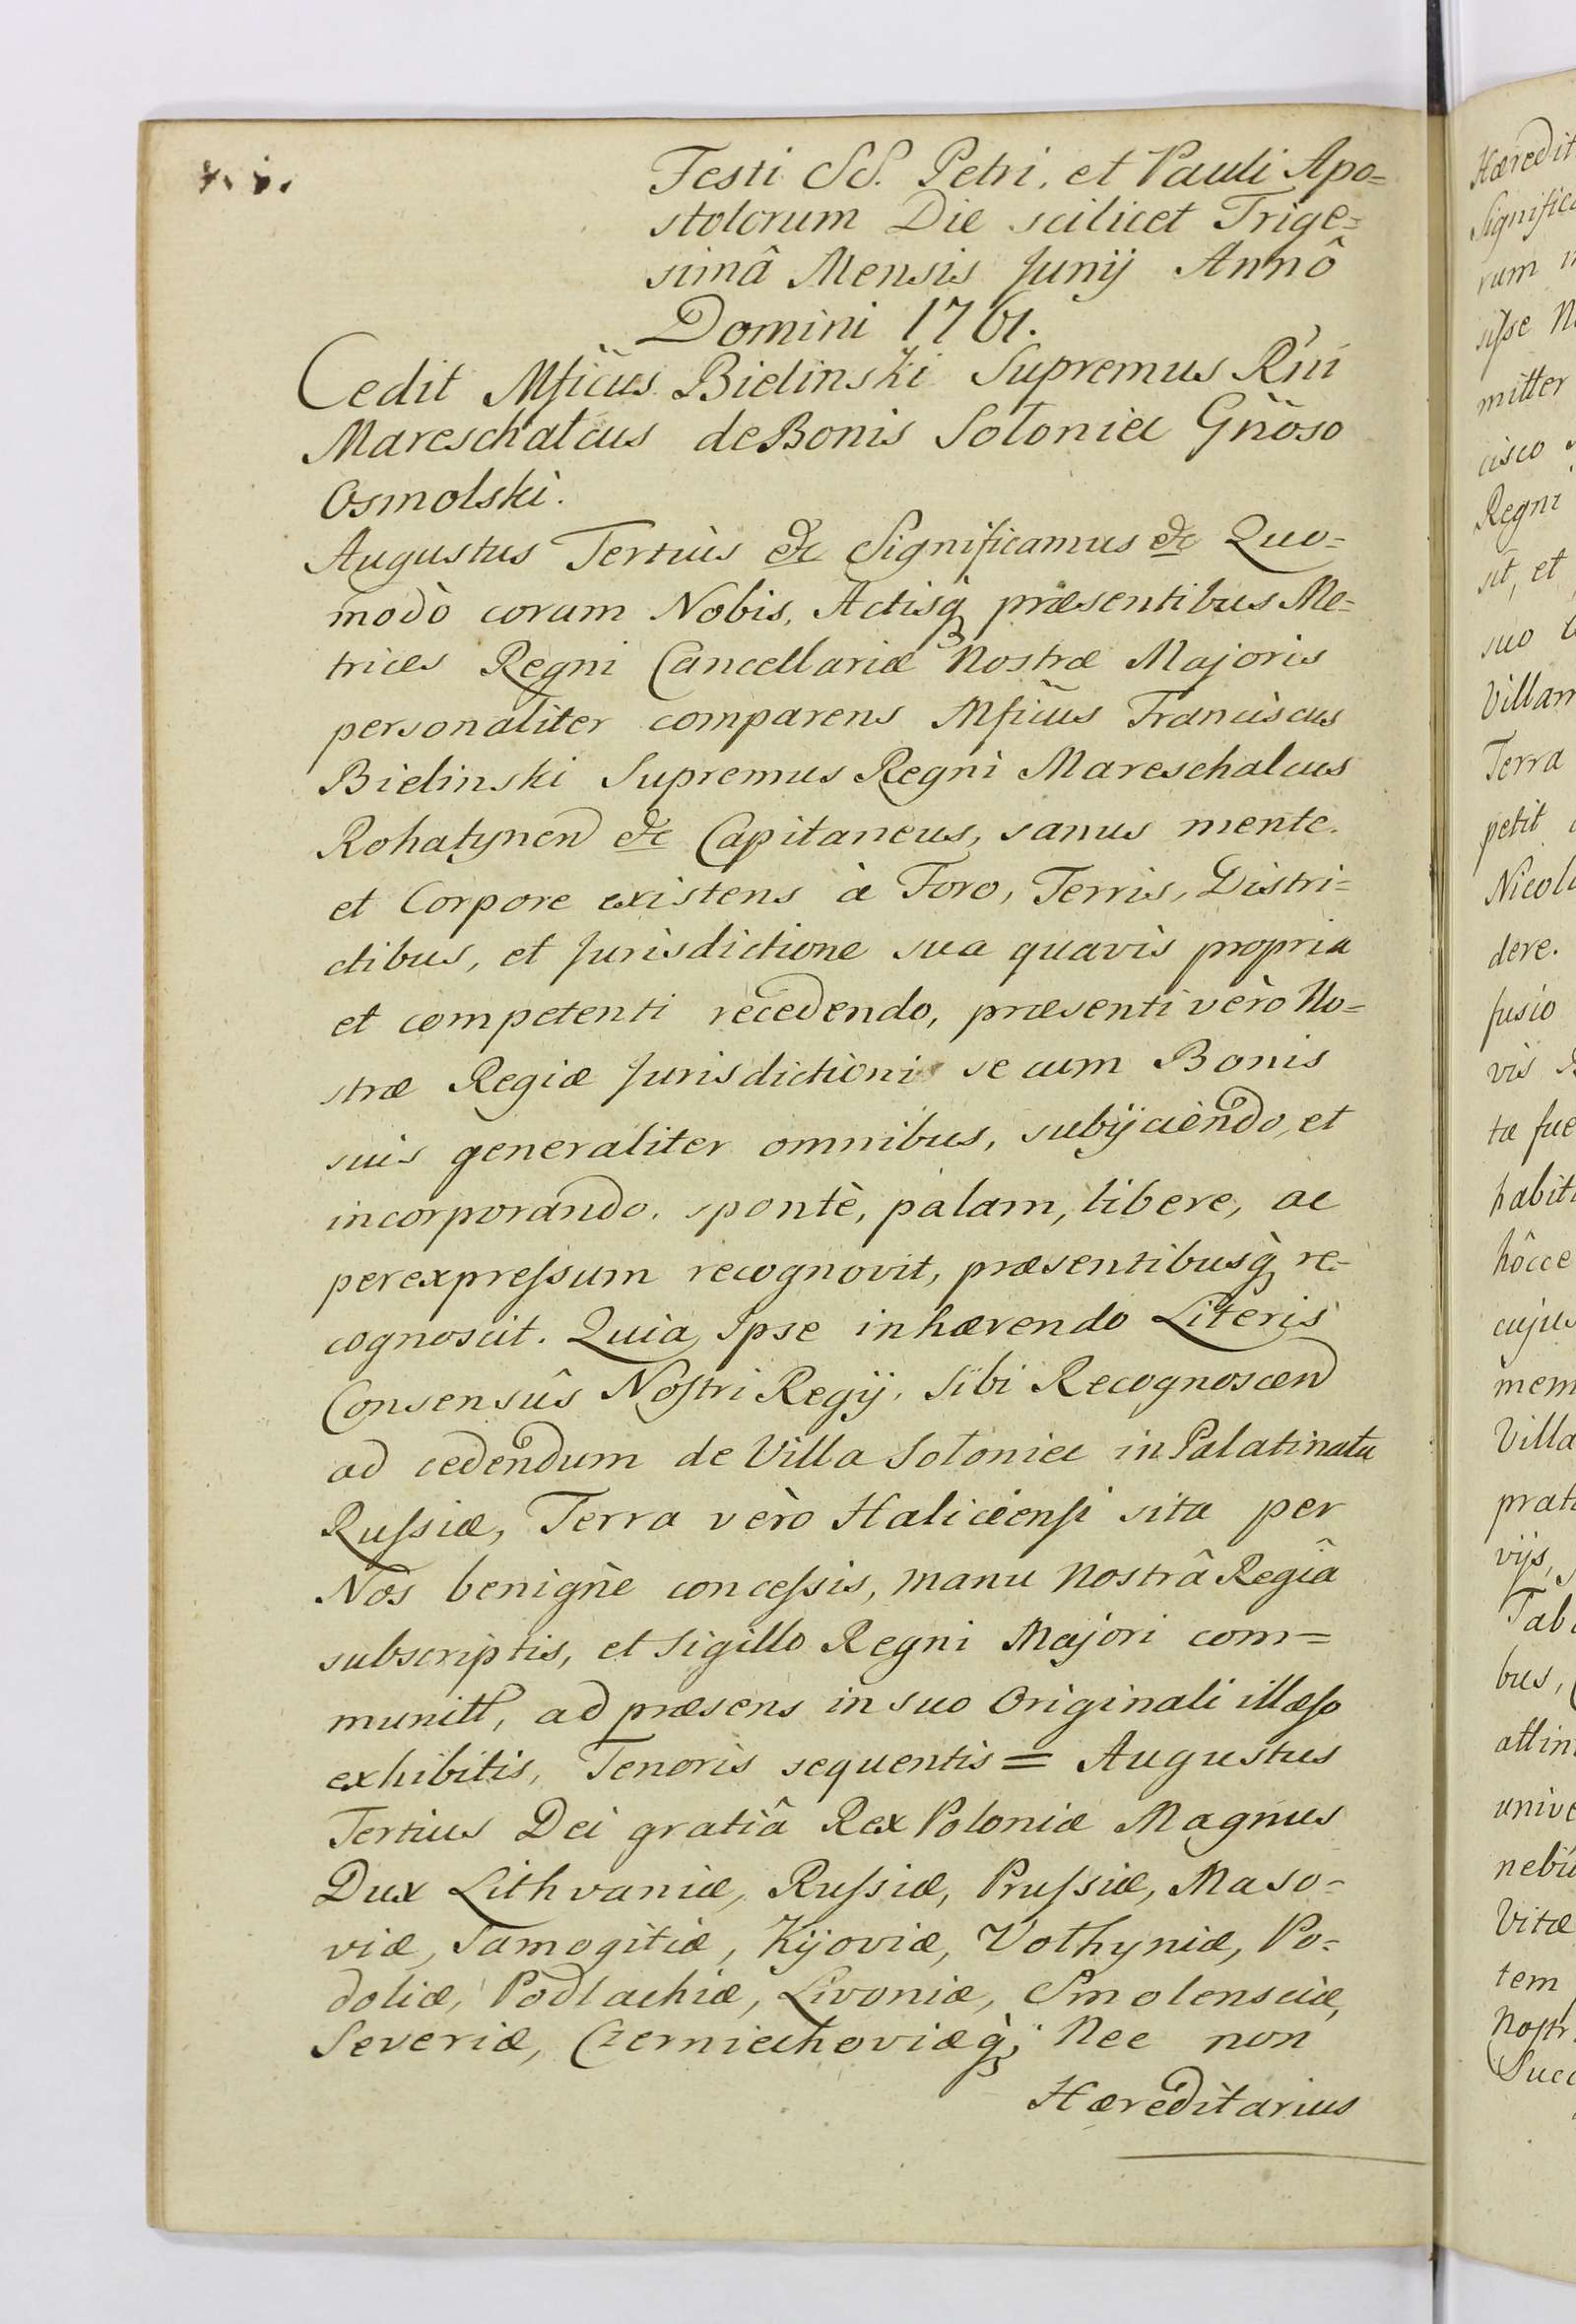 Festi SS. Petri, et Pauli Apo=
stolorum Die scilicet Trige=
simâ Mensis Junij Annô
Domini 1761.
Cedit Mficus Bielinski Supremus Rni
Mareschalcus de Bonis Sołoniec Gnoso
Osmolski.
Augustus Tertius &c Significamus &c Quo=
modò coram Nobis, Actisq́ præsentibus Me=
trices Regni Cancellariæ Nostræ Majoris
personaliter comparens Mficus Franciscus
Bielinski Supremus Regni Mareschalcus
Rohatynen &c Capitaneus, sanus mente.
et Corpore existens à Foro, Terris, Distri=
ctibus, et Jurisdictione sua quavis propria
et competenti recedendo, præsenti verò No=
stræ Regiæ Jurisdictioni se cum Bonis
suis generaliter omnibus, subijciendo, et
incorporando. spontè, palam, libere, ac
per expreſsum recognovit, præsentibusq́ re=
cognoscit. Quia Ipse inhærendo Literis
Consensûs Noſtri Regij, sibi Recognoscen
ad cedendum de Villa Sołoniec in Palatinatu
Ruſsiæ, Terra verò Haliciensi sita per
Nos benignè conceſsis, manu Nostrâ Regiâ
subscriptis, et Sigillo Regni Majori com=
munitt, ad præsens in suo Originali illæſo
exhibitis, Tenoris sequentis = Augustus
Tertius Dei gratiâ Rex Poloniæ Magnus
Dux Lithvaniæ, Ruſsiæ, Pruſsiæ, Maso=
viæ, Samogitiæ, Kijoviæ, Vołhyniæ, Po=
doliæ, Podlachiæ, Livoniæ, Smolensciæ,
Severiæ, Czerniechoviæq́; Nec non
Hæreditarius